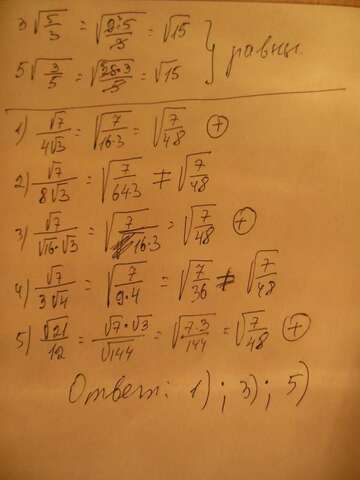 3√(5/3) = √(9·5/3) = √15
5√(3/5) = √(25·3/5) = √15 } равны
1) √7/(4√3) = √(7/(16·3)) = √(7/48) ⊕
2) √7/(8√3) = √(7/(64·3)) ≠ √(7/48)
3) √7/(√16·√3) = √(7/(16·3)) = √(7/48) ⊕
4) √7/(3√4) = √(7/(9·4)) = √(7/36) ≠ √(7/48)
5) √21/12 = √7·√3/√144 = √(7·3/144) = √(7/48) ⊕
Ответ: 1); 3); 5)